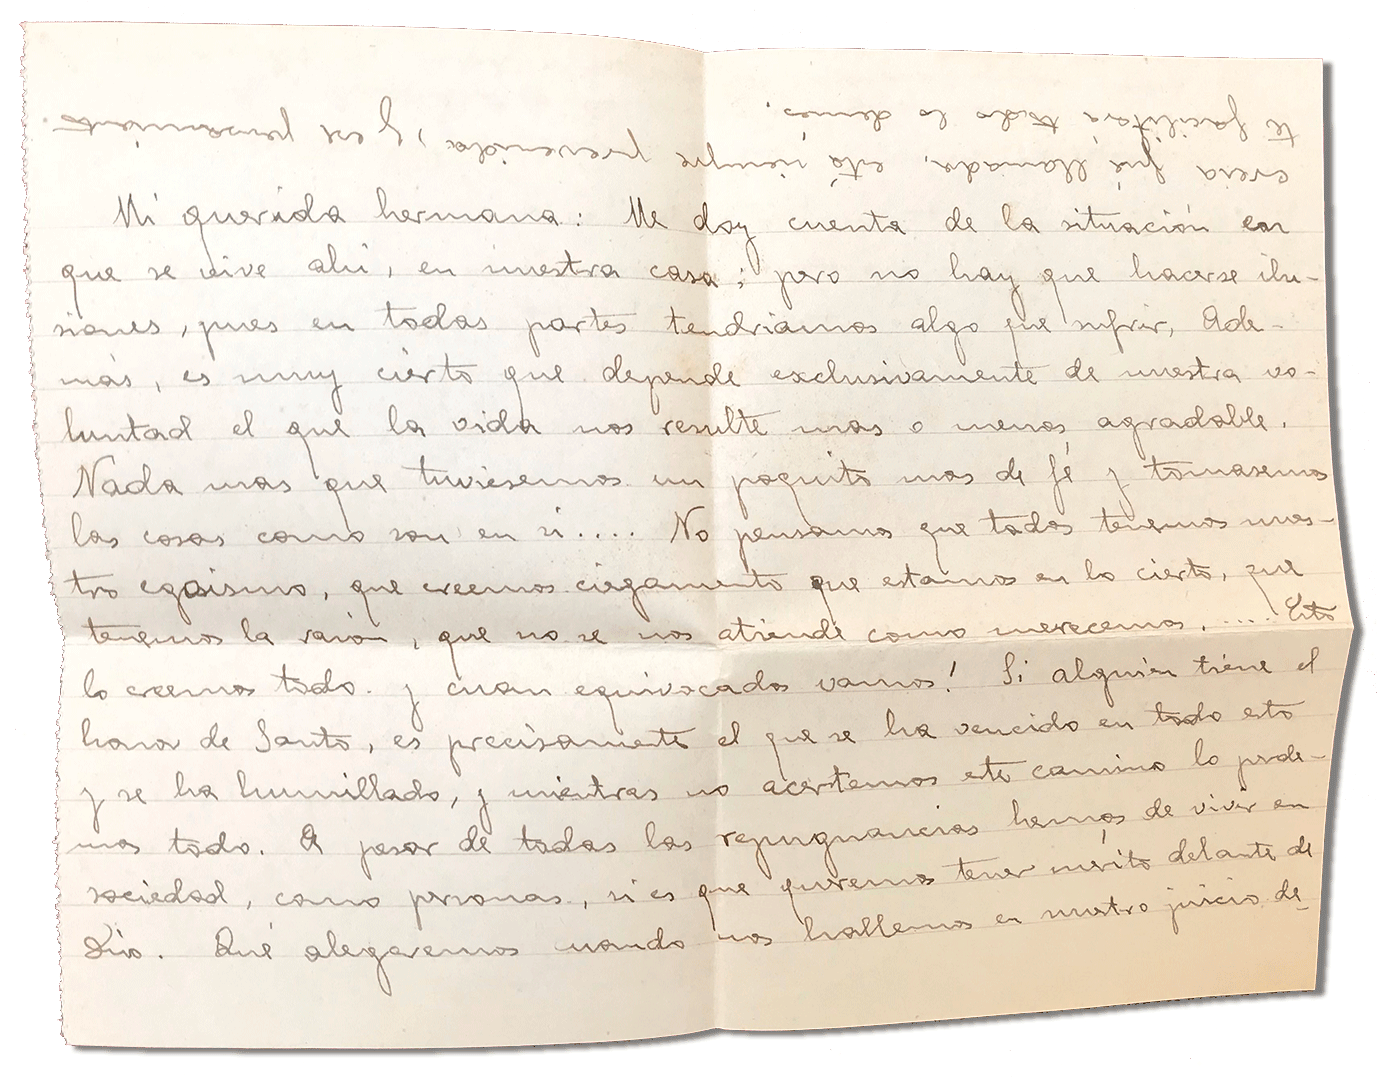 Mi querida hermana: Me doy cuenta de la situación en
que se vive ahi, en nuestra casa; pero no hay que hacerse ilu-
siones, pues en todas partes tendriamos algo que sufrir, Ade-
más, es muy cierto que depende exclusivamente de nuestra vo-
luntad el que la vida nos resulte mas o menos agradable.
Nada mas que tuviesemos un poquito mas de fé y tomasemos
las cosas como son en si.... No pensamos que todos tenemos nues-
tro egoismo, que creemos ciegamente que estamos en lo cierto, que
tenemos la razón, que no se nos atiende como merecemos, .... Esto
lo creemos todo. y cuan equivocados vamos! Si alguien tiene el
honor de Santo, es precisamente el que se ha vencido en todo esto
y se ha humillado, y mientras no acertemos este camino lo perde-
mos todo. A pesar de todas las repugnancias hemos de vivir en
sociedad, como personas, si es que queremos tener mérito delante de
Dio. Qué alegaremos cuando nos hallemos en nuestro juicio de-
creia fué llamada, está siempre prevenida, y ese pensamiento
te facilitará todo lo demás.